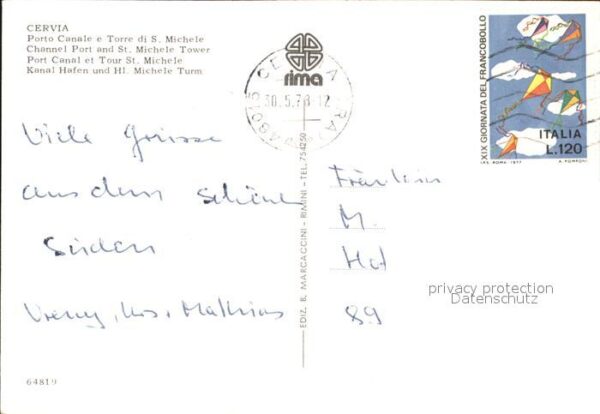 CERVIA
Porto Canale e Torre di S. Michele
Channel Port and St. Michele Tower
Port Canal et Tour St. Michele
Kanal Hafen und Hl. Michele Turm
rima
30.5.78-12
48015 CERVIA (RA)
XIX GIORNATA DEL FRANCOBOLLO
ITALIA
L.120
I.P.S. ROMA - 1977
A. POMPONI
Viele Grüsse
aus dem schönen
Süden
Vreny, Urs, Mathias
EDIZ. B. MARCACCINI - RIMINI - TEL. 754250
Fräulein
M.
Hof
89
privacy protection
Datenschutz
64819